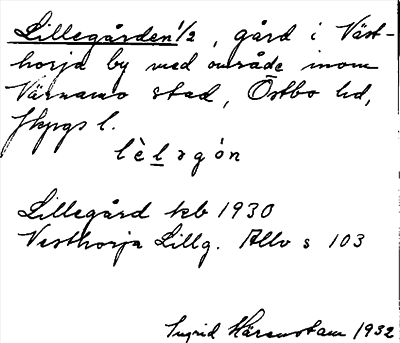 Lillegården 1/2, gård i Väst-
horja by med område inom
Värnamo stad, Östbo hd,
Jkpgs l.
lèləgón
Lillegård kb 1930
Vesthorja Lillg. Allv s 103
Ingrid Härenstam 1932